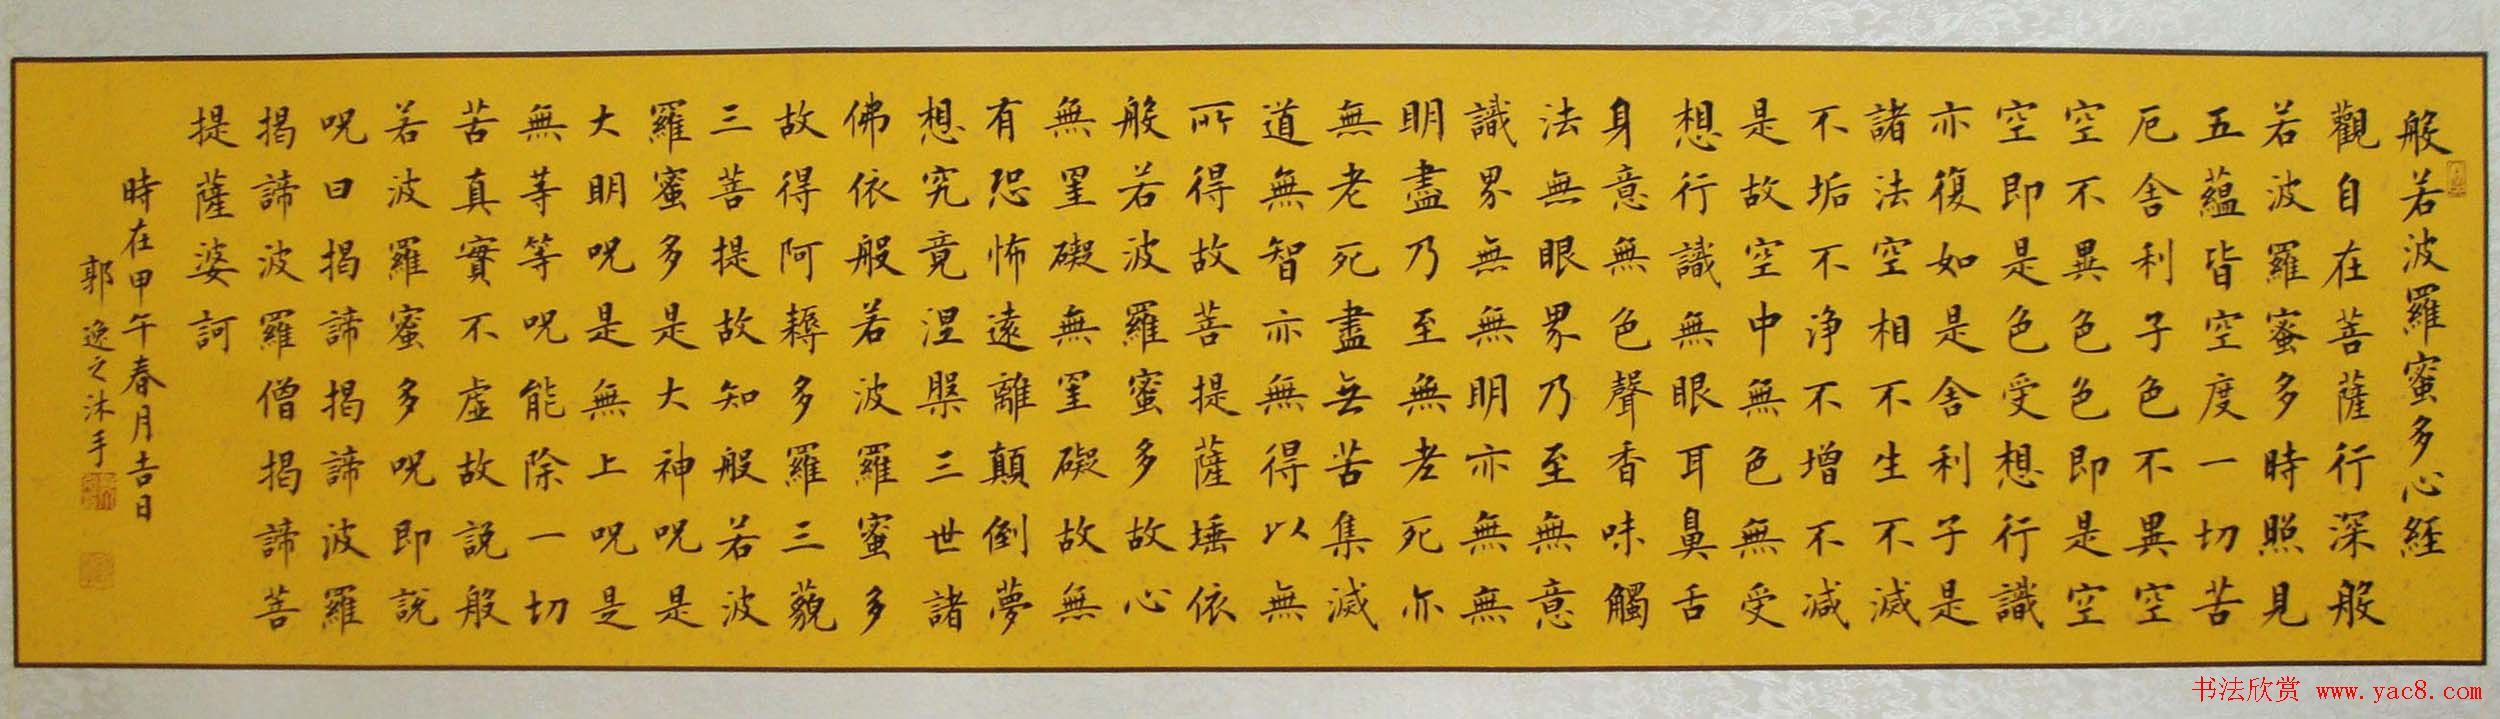 般若波羅蜜多心經
觀自在菩薩行深般
若波羅蜜多時照見
五蘊皆空度一切苦
厄舍利子色不異空
空不異色色即是空
空即是色受想行識
亦復如是舍利子是
諸法空相不生不滅
不垢不净不增不減
是故空中無色無受
想行識無眼耳鼻舌
身意無色聲香味觸
法無眼界乃至無意
識界無無明亦無無
明盡乃至無老死亦
無老死盡无苦集滅
道無智亦無得以無
所得故菩提薩埵依
般若波羅蜜多故心
無罣礙無罣礙故無
有恐怖遠離顛倒夢
想究竟涅槃三世諸
佛依般若波羅蜜多
故得阿耨多羅三藐
三菩提故知般若波
羅蜜多是大神呪是
大明呪是無上呪是
無等等呪能除一切
苦真實不虛故説般
若波羅蜜多呪即説
呪曰揭諦揭諦波羅
揭諦波羅僧揭諦菩
提薩婆訶
時在甲午春月吉日
郭逸之沐手
书法欣赏 www.yac8.com